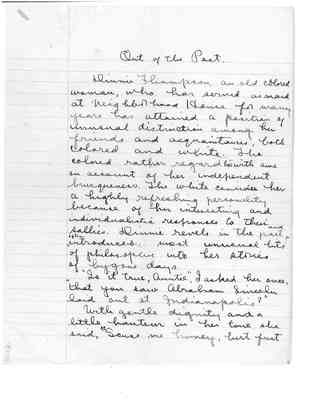 Out of the Past.
Minnie Thompson an old colored
woman, who has served as maid
at Neighborhood House for many
years has attained a position of
unusual distinction among her
friends and acquaintances, both
colored and white. The
colored rather regard with awe
on account of her independent
brusqueness. The white consider her
a highly refreshing personality
because of her interesting and
individualistic responses to their
sallies. Minnie revels in the past and
introduces most unusual bits
of philosophy into her stories
of bygone days.
"Is it true, Auntie", I asked her once,
that you saw Abraham Lincoln
laid out at Indianapolis?"
With gentle dignity and a
little hauteur in her tone she
said, "Scuse me honey, but fust